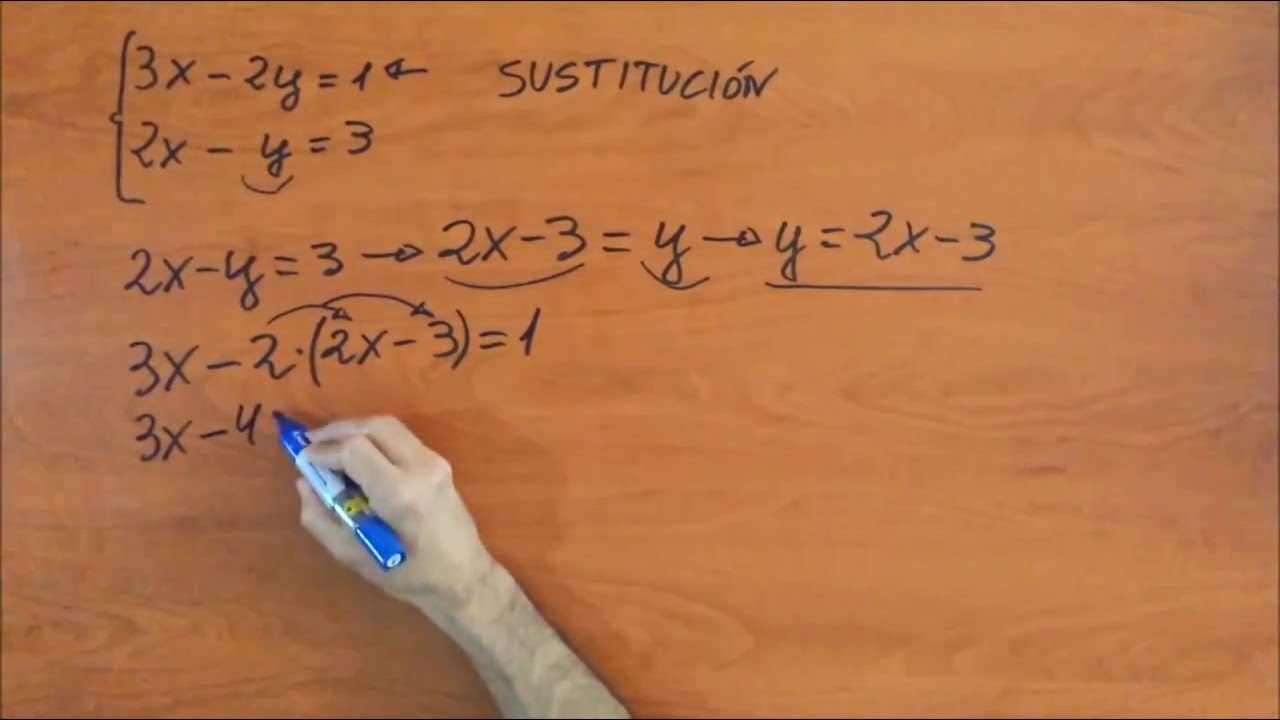 3x - 2y = 1 ← SUSTITUCIÓN
2x - y = 3
2x - y = 3 → 2x - 3 = y → y = 2x - 3
3x - 2·(2x - 3) = 1
3x - 4